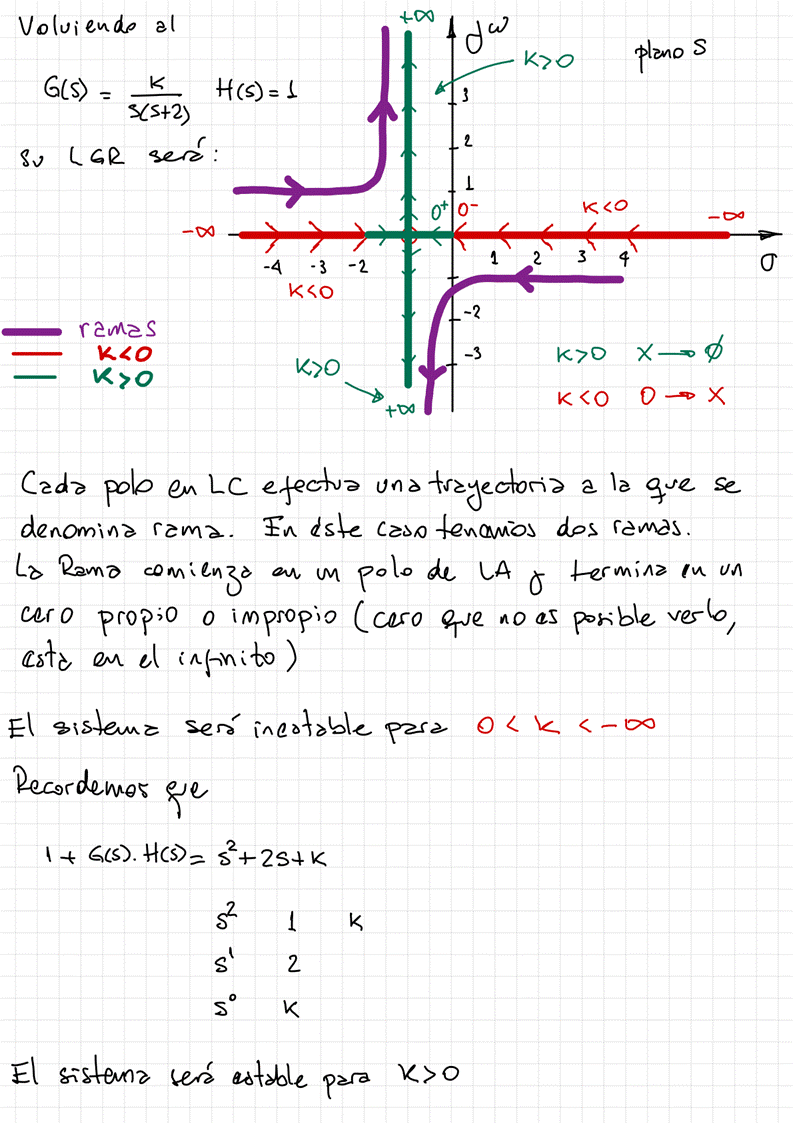 Volviendo al
G(s) = K / s(s+2) H(s) = 1
su LGR será:
+∞
jω
plano S
K>0
3
2
1
0⁺ 0⁻
K<0
-∞
-∞
-4 -3 -2 1 2 3 4 σ
K<0
-2
-3
ramas
K<0
K>0
K>0
+∞
K>0 X → ∅
K<0 0 → X
Cada polo en LC efectua una trayectoria a la que se
denomina rama. En éste caso tenemos dos ramas.
La Rama comienza en un polo de LA y termina en un
cero propio o impropio (cero que no es posible verlo,
esta en el infinito)
El sistema será inestable para 0 < K < -∞
Recordemos que
1 + G(s).H(s) = s² + 2s + K
s² 1 K
s¹ 2
s⁰ K
El sistema será estable para K>0